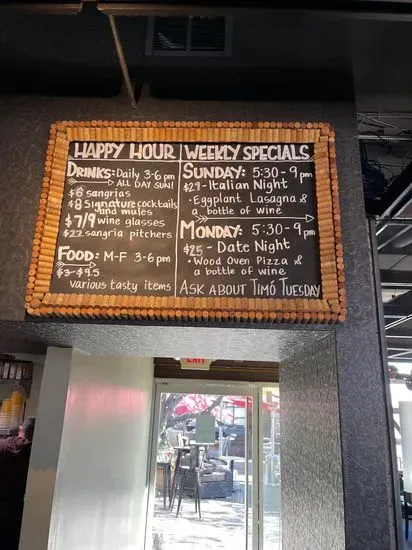 HAPPY HOUR
DRINKS: Daily 3-6 pm
ALL DAY SUN!
$6 sangrias
$8 Signature cocktails
and mules
$7/9 wine glasses
$22 sangria pitchers
FOOD: M-F 3-6pm
$3-$9.5
various tasty items
WEEKLY SPECIALS
SUNDAY: 5:30-9pm
$29-Italian Night
·Eggplant Lasagna &
a bottle of wine
MONDAY: 5:30-9pm
$25-Date Night
·Wood Oven Pizza &
a bottle of wine
ASK ABOUT TIMÓ TUESDAY
EXIT